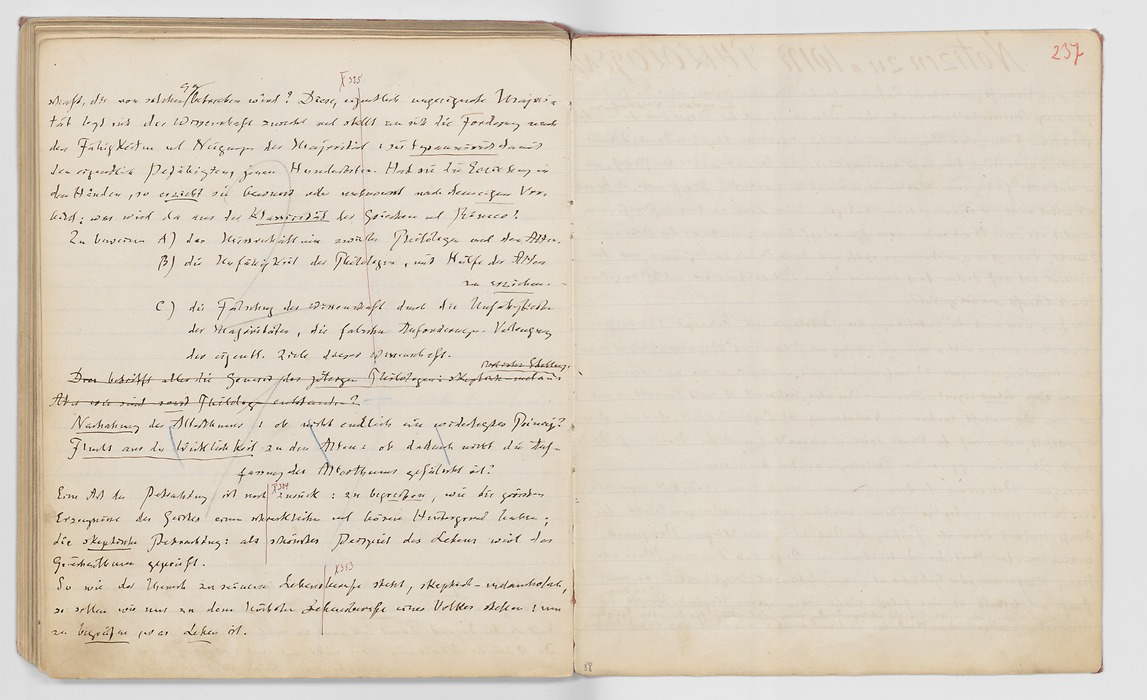 schaft, die von solchen betrieben wird? Diese, eigentlich ungeeignete Majori-
tät legt sich die Wissenschaft zurecht und stellt an sich die Forderung nach
den Fähigkeiten und Neigungen der Majorität: sie tyrannisirt damit
den eigentlich Befähigten, jenen Hundertsten. Hat sie die Erziehung in
den Händen, so erzieht sie bewusst oder unbewusst nach dem eigenen Vor-
bild: was wird da aus der Klassicität der Griechen und Römer!
Zu beweisen A) das Missverhältniss zwischen Philologen und den Alten.
B) die Unfähigkeit der Philologen, mit Hülfe der Alten
zu erziehen.
C) die Fälschung der Wissenschaft durch die Unfähigkeit
der Majorität, die falschen Anforderungen. Verleugnung
der eigentl. Ziele dieser Wissenschaft.
Dies betrifft alles die Genesis des jetzigen Philologen: skeptisch-melan
Aber wie sind sonst Philologen entstanden?
Nachahmung des Alterthums: ob nicht endlich ein widerlegtes Princip?
Flucht aus der Wirklichkeit zu den Alten: ob dadurch nicht die Auf-
fassung des Alterthums gefälscht ist?
Eine Art der Betrachtung ist noch zurück: zu begreifen, wie die grössten
Erzeugnisse des Geistes einen schrecklichen und bösen Hintergrund haben;
die skeptische Betrachtung: als schönstes Beispiel des Lebens wird das
Griechenthum geprüft.
So wie der Mensch zu seinem Lebensberufe steht, skeptisch-melancholisch,
so sollen wir uns zu dem höchsten Lebensberufe eines Volkes stellen: um
zu begreifen was Leben ist.
X 325
X 324
X 323
88
237